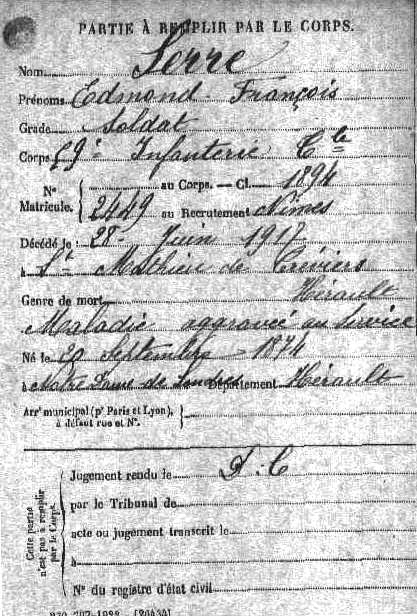 PARTIE À REMPLIR PAR LE CORPS.
Nom Serre
Prénoms Edmond François
Grade Soldat
Corps 59e Infanterie Cie
No Matricule. { au Corps. — Cl. 1894
2449 au Recrutement Nîmes
Décédé le 28 Juin 1917
à St Mathieu de Tréviers
Hérault
Genre de mort
Maladie aggravée au service
Né le 29 Septembre 1874
à Notre Dame de Londres Département Hérault
Arrt municipal (pr Paris et Lyon),
à défaut rue et No.
Cette partie n'est pas à remplir par le Corps.
Jugement rendu le
par le Tribunal de
acte ou jugement transcrit le
à
No du registre d'état civil